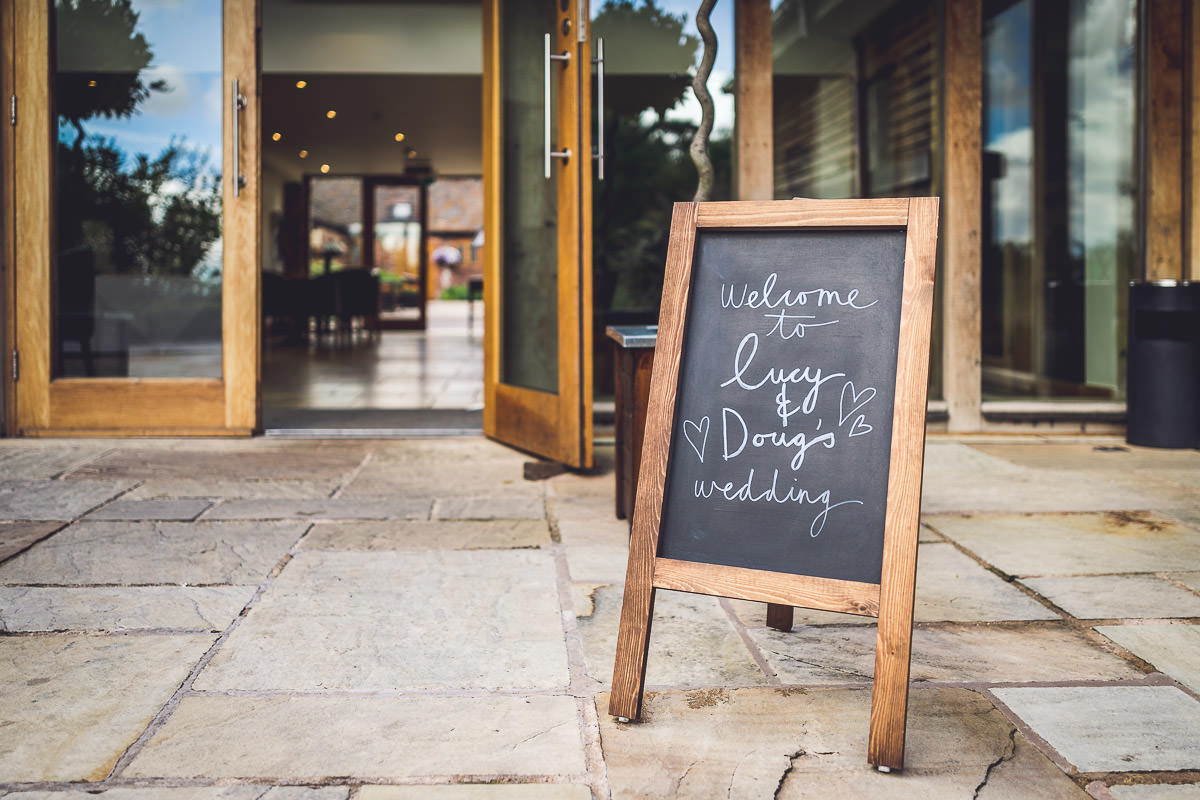 Welcome
to
Lucy
&
Doug's
wedding